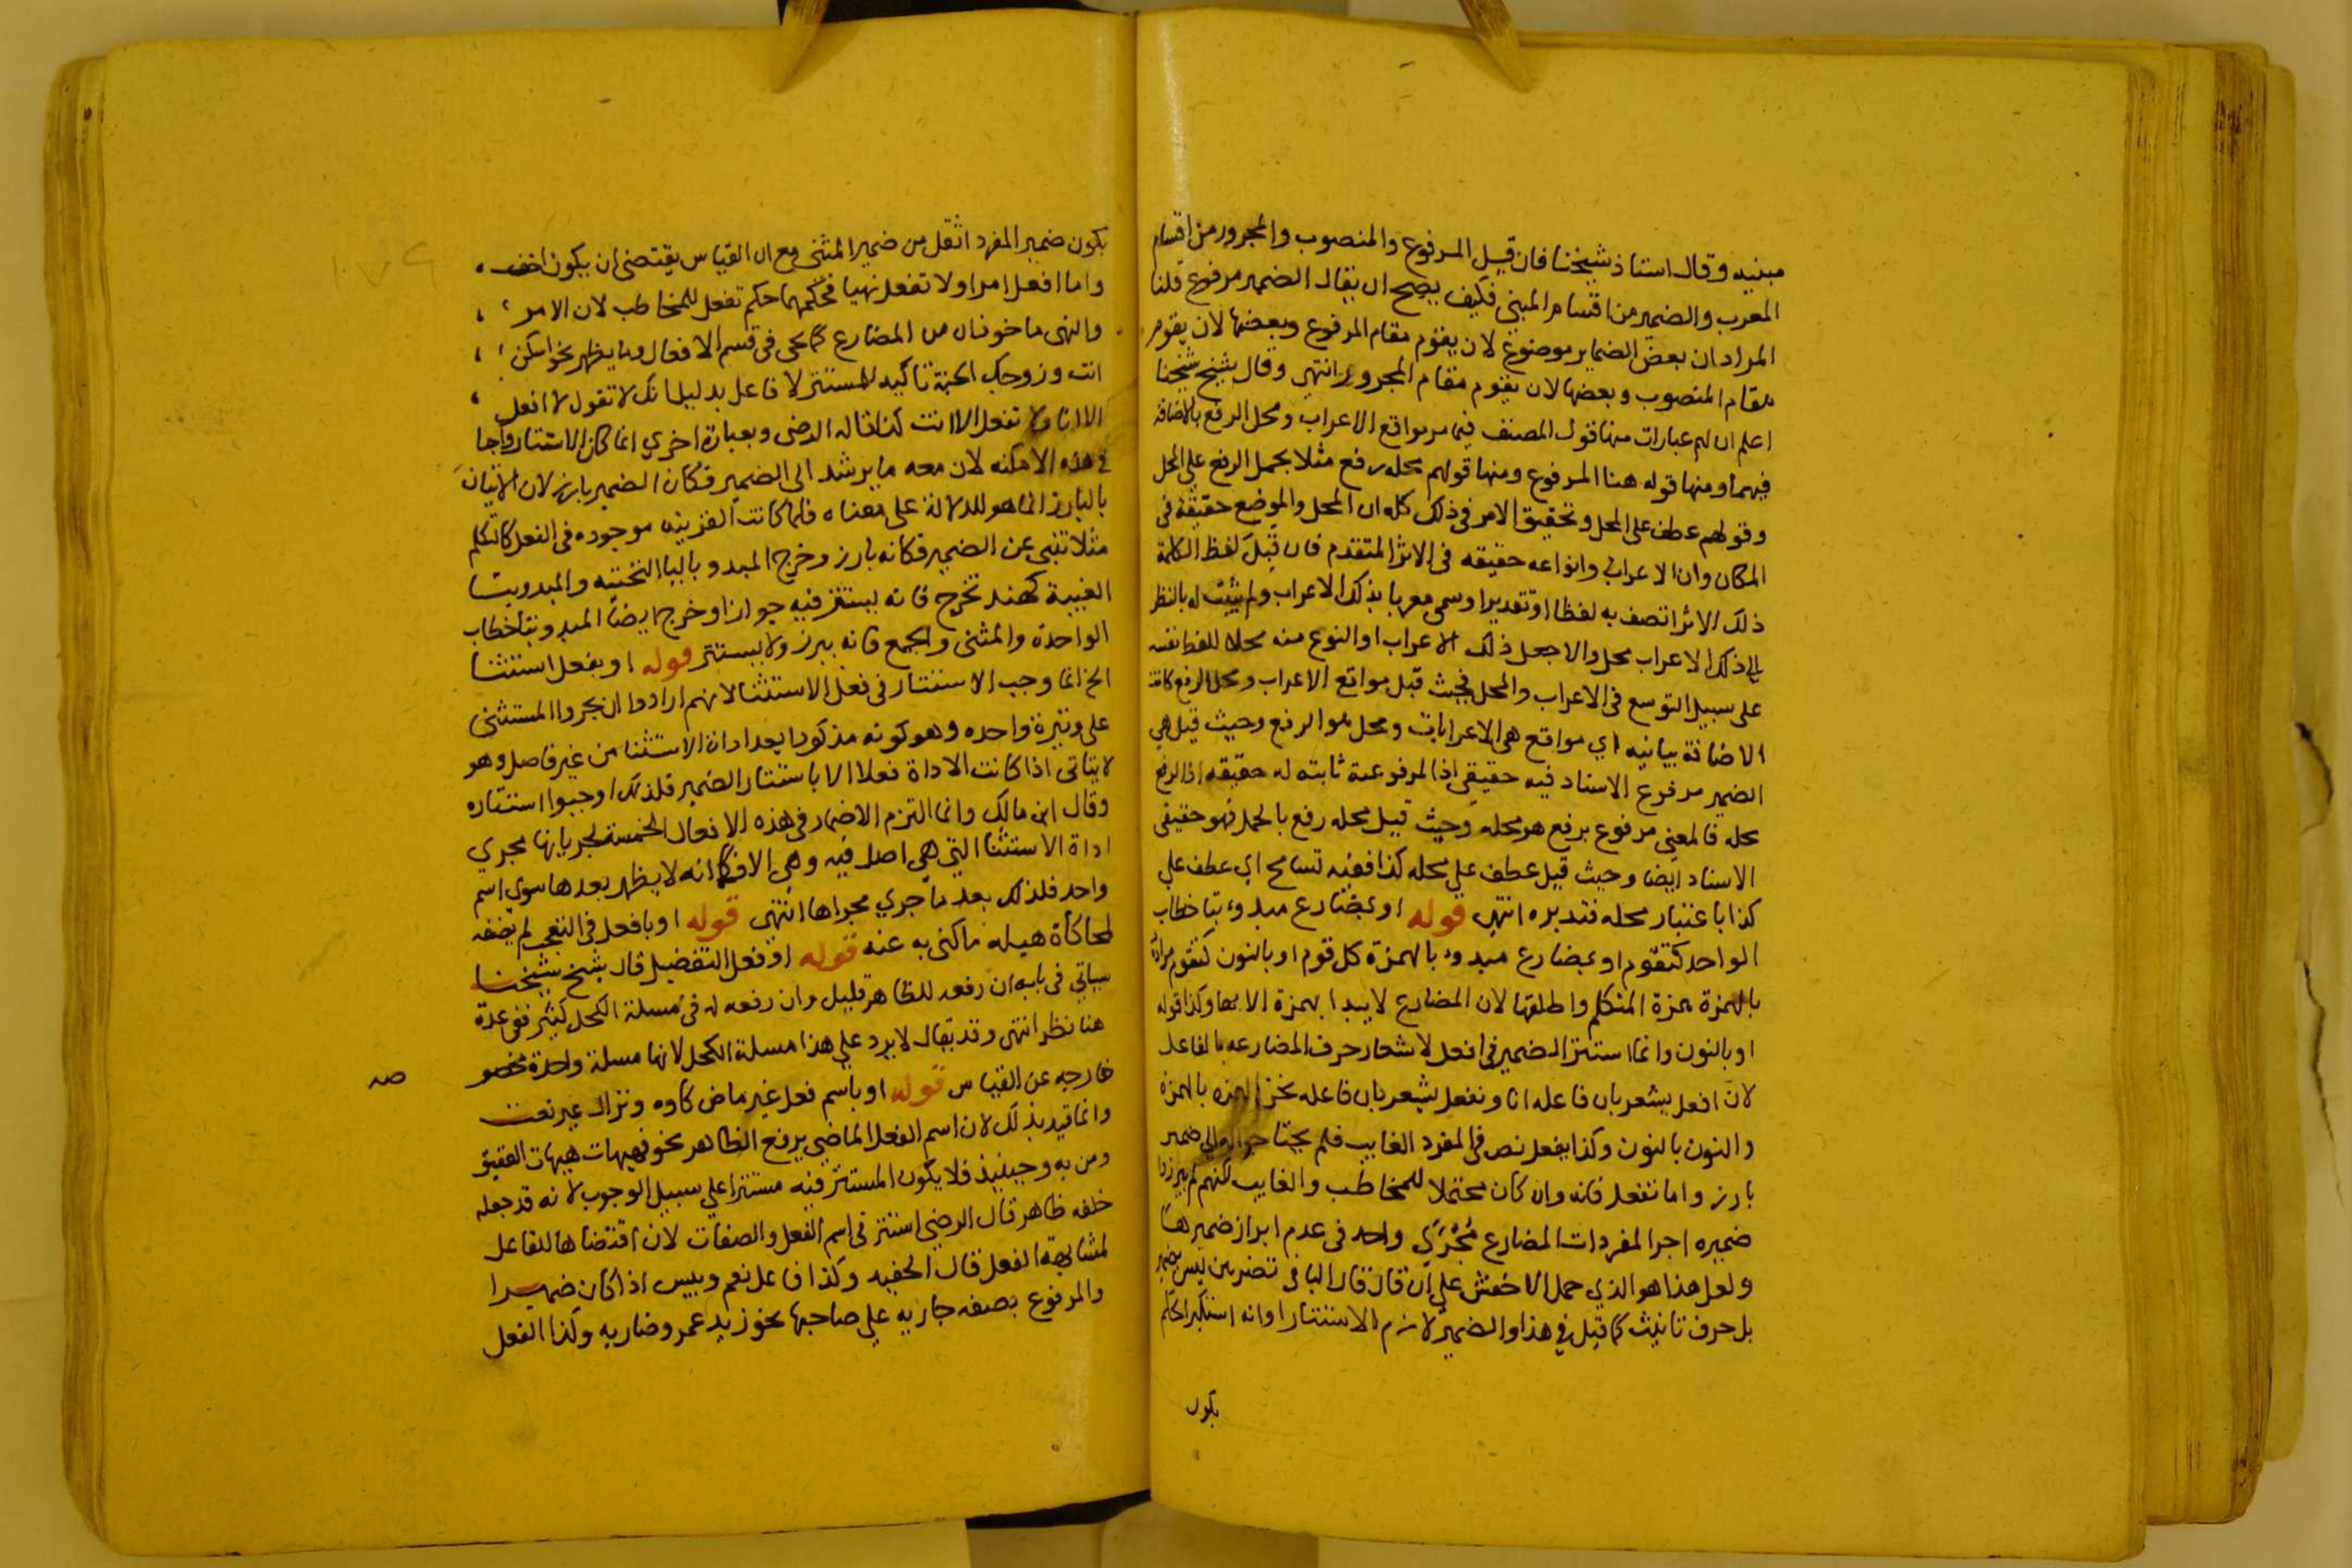 مبنيه وقال استاذ شيخنا فان قيل المرفوع والمنصوب والمجرور من اقسام
المعرب والضمير من اقسام المبني فكيف يصح ان يقال الضمير مرفوع قلنا
المراد ان بعض الضماير موضوع لان يقوم مقام المرفوع وبعضها لان يقوم
مقام المنصوب وبعضها لان يقوم مقام المجرور انتهى وقال شيخ شيخنا
اعلم ان لهم عبارات منها قول المصنف فيما مر مواقع الاعراب ومحل الرفع بالاضافة
فيهما ومنها قوله هنا المرفوع ومنها قولهم محله رفع مثلا بحمل الرفع على المحل
وقولهم عطف على المحل وتحقيق الامر في ذلك كله ان المحل والموضع حقيقة في
المكان وان الاعراب وانواعه حقيقه في الاثر المتقدم فان قبل لفظ الكلمة
ذلك الاثر اتصف به لفظا او تقديرا وسمي معربا بذلك الاعراب ولم يثبت له بالنظر
الى ذلك الاعراب محل والا جعل ذلك الاعراب او النوع منه محلا للفظ نفسه
على سبيل التوسع في الاعراب والمحل فحيث قيل مواقع الاعراب ومحل الرفع كانت
الاضافة بيانيه اي مواقع هي الاعرابات ومحل هو الرفع وحيث قيل هي
الضمير مرفوع الاسناد فيه حقيقي اذ المرفوعية ثابته له حقيقه اذ الرفع
محله فالمعنى مرفوع برفع هو محله وحيث قيل محله رفع بالحمل فهو حقيقي
الاسناد ايضا وحيث قيل عطف على محله كذا ففيه تسامح اي عطف على
كذا باعتبار محله فتدبره انتهى قوله او بمضارع مبدوء بتا خطاب
الواحد كتقوم او بمضارع مبدوء بالهمزة كل قوم او بالنون كنقوم مراده
بالهمزة همزة المتكلم واطلقها لان المضارع لا يبدا بهمزة الا بها وكذا قوله
او بالنون وانما استتر الضمير في افعل لاشعار حرف المضارعه بالفاعل
لان افعل يشعر بان فاعله انا ونفعل يشعر بان فاعله نحن الهمزه بالهمزة
والنون بالنون وكذا يفعل نص في المفرد الغايب فلم يحتاجوا الى ضمير
بارز واما تفعل فانه وان كان محتملا للمخاطب والغايب لكنهم لم يبرزوا
ضميره اجرا لمفردات المضارع مُجْرًى واحد في عدم ابراز ضميرها
ولعل هذا هو الذي حمل الاخفش على ان قال قال اليا في تضربين ليس بضمير
بل حرف تانيث كما قيل في هذا والضمير لازم الاستتار او انه استنكر الحكم
يكون
يكون ضمير المفرد اثقل من ضمير المثنى مع ان القياس يقتضي ان يكون اخف
واما افعل امرا ولا تفعل نهيا فحكمهما حكم تفعل للمخاطب لان الامر
والنهي ماخوذان من المضارع كما يجي في قسم الافعال وما يظهر نحو اسكن
انت وزوجك الجنة تاكيد للمستتر لا فاعل بدليل انك لا تقول لا افعل
الا انا ولا تفعل الا انت كذا قاله الرضي وبعبارة اخرى انما كان الاستتار واجبا
في هذه الامكنه لان معه ما يرشد الى الضمير فكان الضمير بارز لان الاتيان
بالبارز انما هو للدلالة على معناه فلما كانت القرينه موجوده في الفعل كالتكلم
مثلا تنبي عن الضمير فكانه بارز وخرج المبدو باليا التحتيه والمبدو بتا
الغيبة كهند تخرج فانه يستتر فيه جوازا وخرج ايضا المبدو بتا خطاب
الواحدة والمثنى والجمع فانه يبرز ولا يستتر قوله او بفعل استثنا
الخ انما وجب الاستتار في فعل الاستثنا لانهم ارادوا ان يجروا المستثنى
على وتيرة واحده وهو كونه مذكورا بعد اداة الاستثنا من غير فاصل وهو
لا يتاتى اذا كانت الاداة فعلا الا باستتار الضمير فلذلك اوجبوا استتاره
وقال ابن مالك وانما التزم الاضمار في هذه الافعال الخمسة لجريانها مجرى
اداة الاستثنا التي هي اصل فيه وهي الا فكما انه لا يظهر بعدها سوى اسم
واحد فلذلك بعد ما جرى مجراها انتهى قوله او بافعل في التعجب لم يضفه
لمحاكاة هيله ما كنى به عنه قوله او فعل التفضيل قال شيخ شيخنا
سياتي في بابه ان رفعه للظاهر قليل وان رفعه له في مسلة الكحل كثير ففي عدة
هنا نظر انتهى وقد يقال لا يرد على هذا مسلة الكحل لانها مسلة واحدة
صه
خارجه عن القياس قوله او باسم فعل غير ماض كاوه ونزال غير نعت
وانما قيد بذلك لان اسم الفعل الماضي يرفع الظاهر نحو فهيهات هيهات العقيق
ومن به وحينيذ فلا يكون المستتر فيه مستترا على سبيل الوجوب لانه قد جعله
خلفه ظاهر قال الرضي استتر في اسم الفعل والصفات لان اقتضاها للفاعل
لمشابهة الفعل قال الحفيد وكذا فاعل نعم وبيس اذا كان ضميرا
والمرفوع بصفه جاريه على صاحبها نحو زيد عمر وضاربه وكذا الفعل